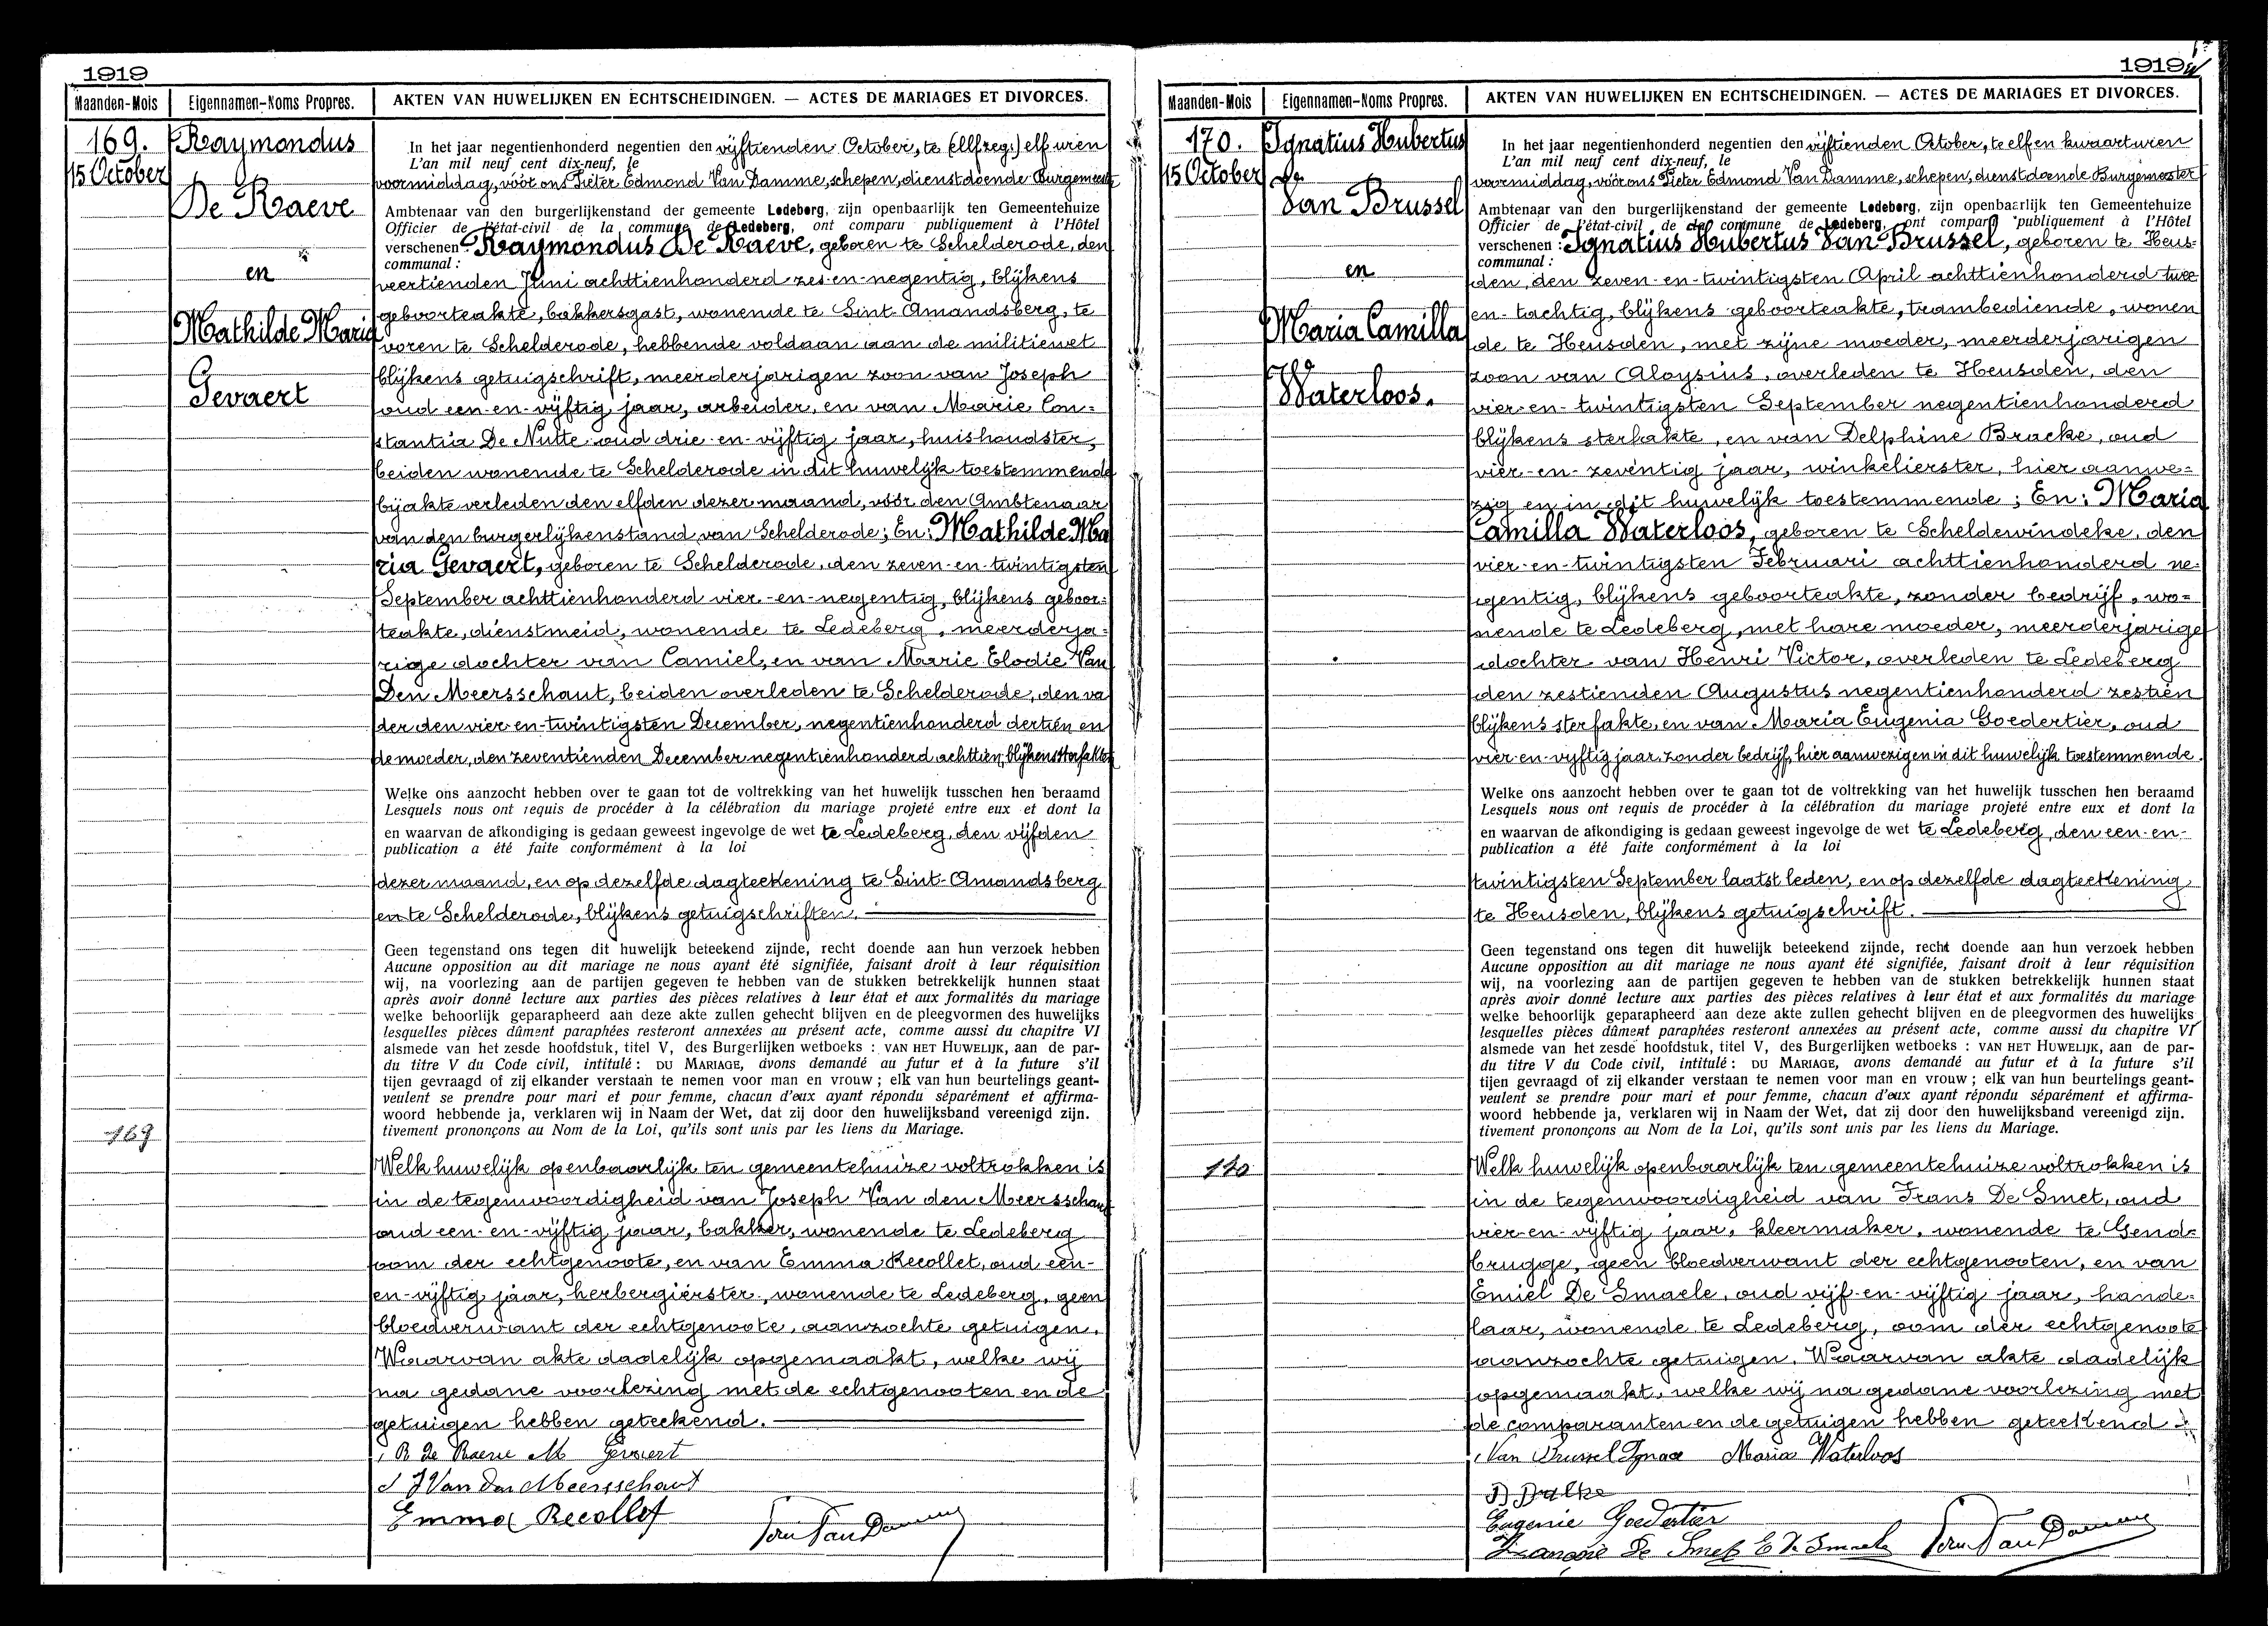 1919
Maanden-Mois
Eigennamen-Noms Propres.
AKTEN VAN HUWELIJKEN EN ECHTSCHEIDINGEN. — ACTES DE MARIAGES ET DIVORCES.
169.
15 October
Raymondus
De Raeve
en
Mathilde Maria
Gevaert
In het jaar negentienhonderd negentien den vijftienden October, te (ellf zeg:) elf uren
L'an mil neuf cent dix-neuf, le
voormiddag, vóór ons Pieter Edmond Van Damme, schepen, dienstdoende Burgemeester
Ambtenaar van den burgerlijkenstand der gemeente Ledeberg, zijn openbaarlijk ten Gemeentehuize
Officier de l'état-civil de la commune de Ledeberg, ont comparu publiquement à l'Hôtel
verschenen : Raymondus De Raeve, geboren te Schelderode, den
communal :
veertienden Juni achttienhonderd zes-en-negentig, blijkens
geboorteakte, bakkersgast, wonende te Sint-Amandsberg, te
voren te Schelderode, hebbende voldaan aan de militiewet
blijkens getuigschrift, meerderjarigen zoon van Joseph
oud een-en-vijftig jaar, arbeider, en van Marie Con-
stantia De Nutte oud drie-en-vijftig jaar, huishoudster,
beiden wonende te Schelderode in dit huwelijk toestemmende
bij akte verleden den elfden dezer maand, vóór den Ambtenaar
van den burgerlijkenstand van Schelderode; En: Mathilde Ma
ria Gevaert, geboren te Schelderode, den zeven-en-twintigsten
September achttienhonderd vier-en-negentig, blijkens geboor-
teakte, dienstmeid, wonende te Ledeberg, meerderja-
rige dochter van Camiel, en van Marie Elodie Van
Den Meersschaut, beiden overleden te Schelderode, den va
der den vier en-twintigsten December, negentienhonderd dertien en
de moeder, den zeventienden December negentienhonderd achttien, blijkens sterfakten
Welke ons aanzocht hebben over te gaan tot de voltrekking van het huwelijk tusschen hen beraamd
Lesquels nous ont requis de procéder à la célébration du mariage projeté entre eux et dont la
en waarvan de afkondiging is gedaan geweest ingevolge de wet te Ledeberg, den vijfden
publication a été faite conformément à la loi
dezer maand, en op dezelfde dagteekening te Sint-Amandsberg
en te Schelderode, blijkens getuigschriften.
Geen tegenstand ons tegen dit huwelijk beteekend zijnde, recht doende aan hun verzoek hebben
Aucune opposition au dit mariage ne nous ayant été signifiée, faisant droit à leur réquisition
wij, na voorlezing aan de partijen gegeven te hebben van de stukken betrekkelijk hunnen staat
après avoir donné lecture aux parties des pièces relatives à leur état et aux formalités du mariage
welke behoorlijk geparapheerd aan deze akte zullen gehecht blijven en de pleegvormen des huwelijks
lesquelles pièces dûment paraphées resteront annexées au présent acte, comme aussi du chapitre VI
alsmede van het zesde hoofdstuk, titel V, des Burgerlijken wetboeks : VAN HET HUWELIJK, aan de par-
du titre V du Code civil, intitulé : DU MARIAGE, avons demandé au futur et à la future s'il
tijen gevraagd of zij elkander verstaan te nemen voor man en vrouw ; elk van hun beurtelings geant-
veulent se prendre pour mari et pour femme, chacun d'eux ayant répondu séparément et affirma-
woord hebbende ja, verklaren wij in Naam der Wet, dat zij door den huwelijksband vereenigd zijn.
tivement prononçons au Nom de la Loi, qu'ils sont unis par les liens du Mariage.
169
Welk huwelijk openbaarlijk ten gemeentehuize voltrokken is
in de tegenwoordigheid van Joseph Van den Meersschaut
oud een-en-vijftig jaar, bakker, wonende te Ledeberg
oom der echtgenoote, en van Emma Recollet, oud een-
en-vijftig jaar, herbergierster, wonende te Ledeberg, geen
bloedverwant der echtgenoote, aanzochte getuigen.
Waarvan akte dadelijk opgemaakt, welke wij
na gedane voorlezing met de echtgenooten en de
getuigen hebben geteekend.
R De Raeve M Gevaert
J Van den Meersschaut
Emma Recollet
1919
Maanden-Mois
Eigennamen-Noms Propres.
AKTEN VAN HUWELIJKEN EN ECHTSCHEIDINGEN. — ACTES DE MARIAGES ET DIVORCES.
170.
15 October
Ignatius Hubertus
Van Brussel
en
Maria Camilla
Waterloos.
In het jaar negentienhonderd negentien den vijftienden October, te elf en kwaart uren
L'an mil neuf cent dix-neuf, le
voormiddag, vóór ons Pieter Edmond Van Damme, schepen, dienstdoende Burgemeester
Ambtenaar van den burgerlijkenstand der gemeente Ledeberg, zijn openbaarlijk ten Gemeentehuize
Officier de l'état-civil de la commune de Ledeberg, ont comparu publiquement à l'Hôtel
verschenen : Ignatius Hubertus Van Brussel, geboren te Heus-
communal :
den, den zeven-en-twintigsten April achttienhonderd twee
en-tachtig, blijkens geboorteakte, trambediende, wonen
de te Heusden, met zijne moeder, meerderjarigen
zoon van Aloysius, overleden te Heusden, den
vier-en-twintigsten September negentienhonderd
blijkens sterfakte, en van Delphine Bracke, oud
vier-en-zeventig jaar, winkelierster, hier aanwe-
zig en in dit huwelijk toestemmende; En: Maria
Camilla Waterloos, geboren te Scheldewindeke, den
vier-en-twintigsten Februari achttienhonderd ne-
gentig, blijkens geboorteakte, zonder bedrijf, wo-
nende te Ledeberg, met hare moeder, meerderjarige
dochter van Henri Victor, overleden te Ledeberg
den zestienden Augustus negentienhonderd zestien
blijkens sterfakte, en van Maria Eugenia Goedertier, oud
vier-en-vijftig jaar, zonder bedrijf, hier aanwezig en in dit huwelijk toestemmende.
Welke ons aanzocht hebben over te gaan tot de voltrekking van het huwelijk tusschen hen beraamd
Lesquels nous ont requis de procéder à la célébration du mariage projeté entre eux et dont la
en waarvan de afkondiging is gedaan geweest ingevolge de wet te Ledeberg, den een-en-
publication a été faite conformément à la loi
twintigsten September laatst leden, en op dezelfde dagteekening
te Heusden, blijkens getuigschrift.
Geen tegenstand ons tegen dit huwelijk beteekend zijnde, recht doende aan hun verzoek hebben
Aucune opposition au dit mariage ne nous ayant été signifiée, faisant droit à leur réquisition
wij, na voorlezing aan de partijen gegeven te hebben van de stukken betrekkelijk hunnen staat
après avoir donné lecture aux parties des pièces relatives à leur état et aux formalités du mariage
welke behoorlijk geparapheerd aan deze akte zullen gehecht blijven en de pleegvormen des huwelijks
lesquelles pièces dûment paraphées resteront annexées au présent acte, comme aussi du chapitre VI
alsmede van het zesde hoofdstuk, titel V, des Burgerlijken wetboeks : VAN HET HUWELIJK, aan de par-
du titre V du Code civil, intitulé : DU MARIAGE, avons demandé au futur et à la future s'il
tijen gevraagd of zij elkander verstaan te nemen voor man en vrouw ; elk van hun beurtelings geant-
veulent se prendre pour mari et pour femme, chacun d'eux ayant répondu séparément et affirma-
woord hebbende ja, verklaren wij in Naam der Wet, dat zij door den huwelijksband vereenigd zijn.
tivement prononçons au Nom de la Loi, qu'ils sont unis par les liens du Mariage.
170
Welk huwelijk openbaarlijk ten gemeentehuize voltrokken is
in de tegenwoordigheid van Frans De Smet, oud
vier-en-vijftig jaar, kleermaker, wonende te Gend-
brugge, geen bloedverwant der echtgenooten, en van
Emiel De Smaele, oud vijf-en-vijftig jaar, hande-
laar, wonende te Ledeberg, oom der echtgenoote
aanzochte getuigen. Waarvan akte dadelijk
opgemaakt, welke wij na gedane voorlezing met
de comparanten en de getuigen hebben geteekend
Van Brussel Ignace Maria Waterloos
Eugenie Goedertier
François De Smet E De Smaele